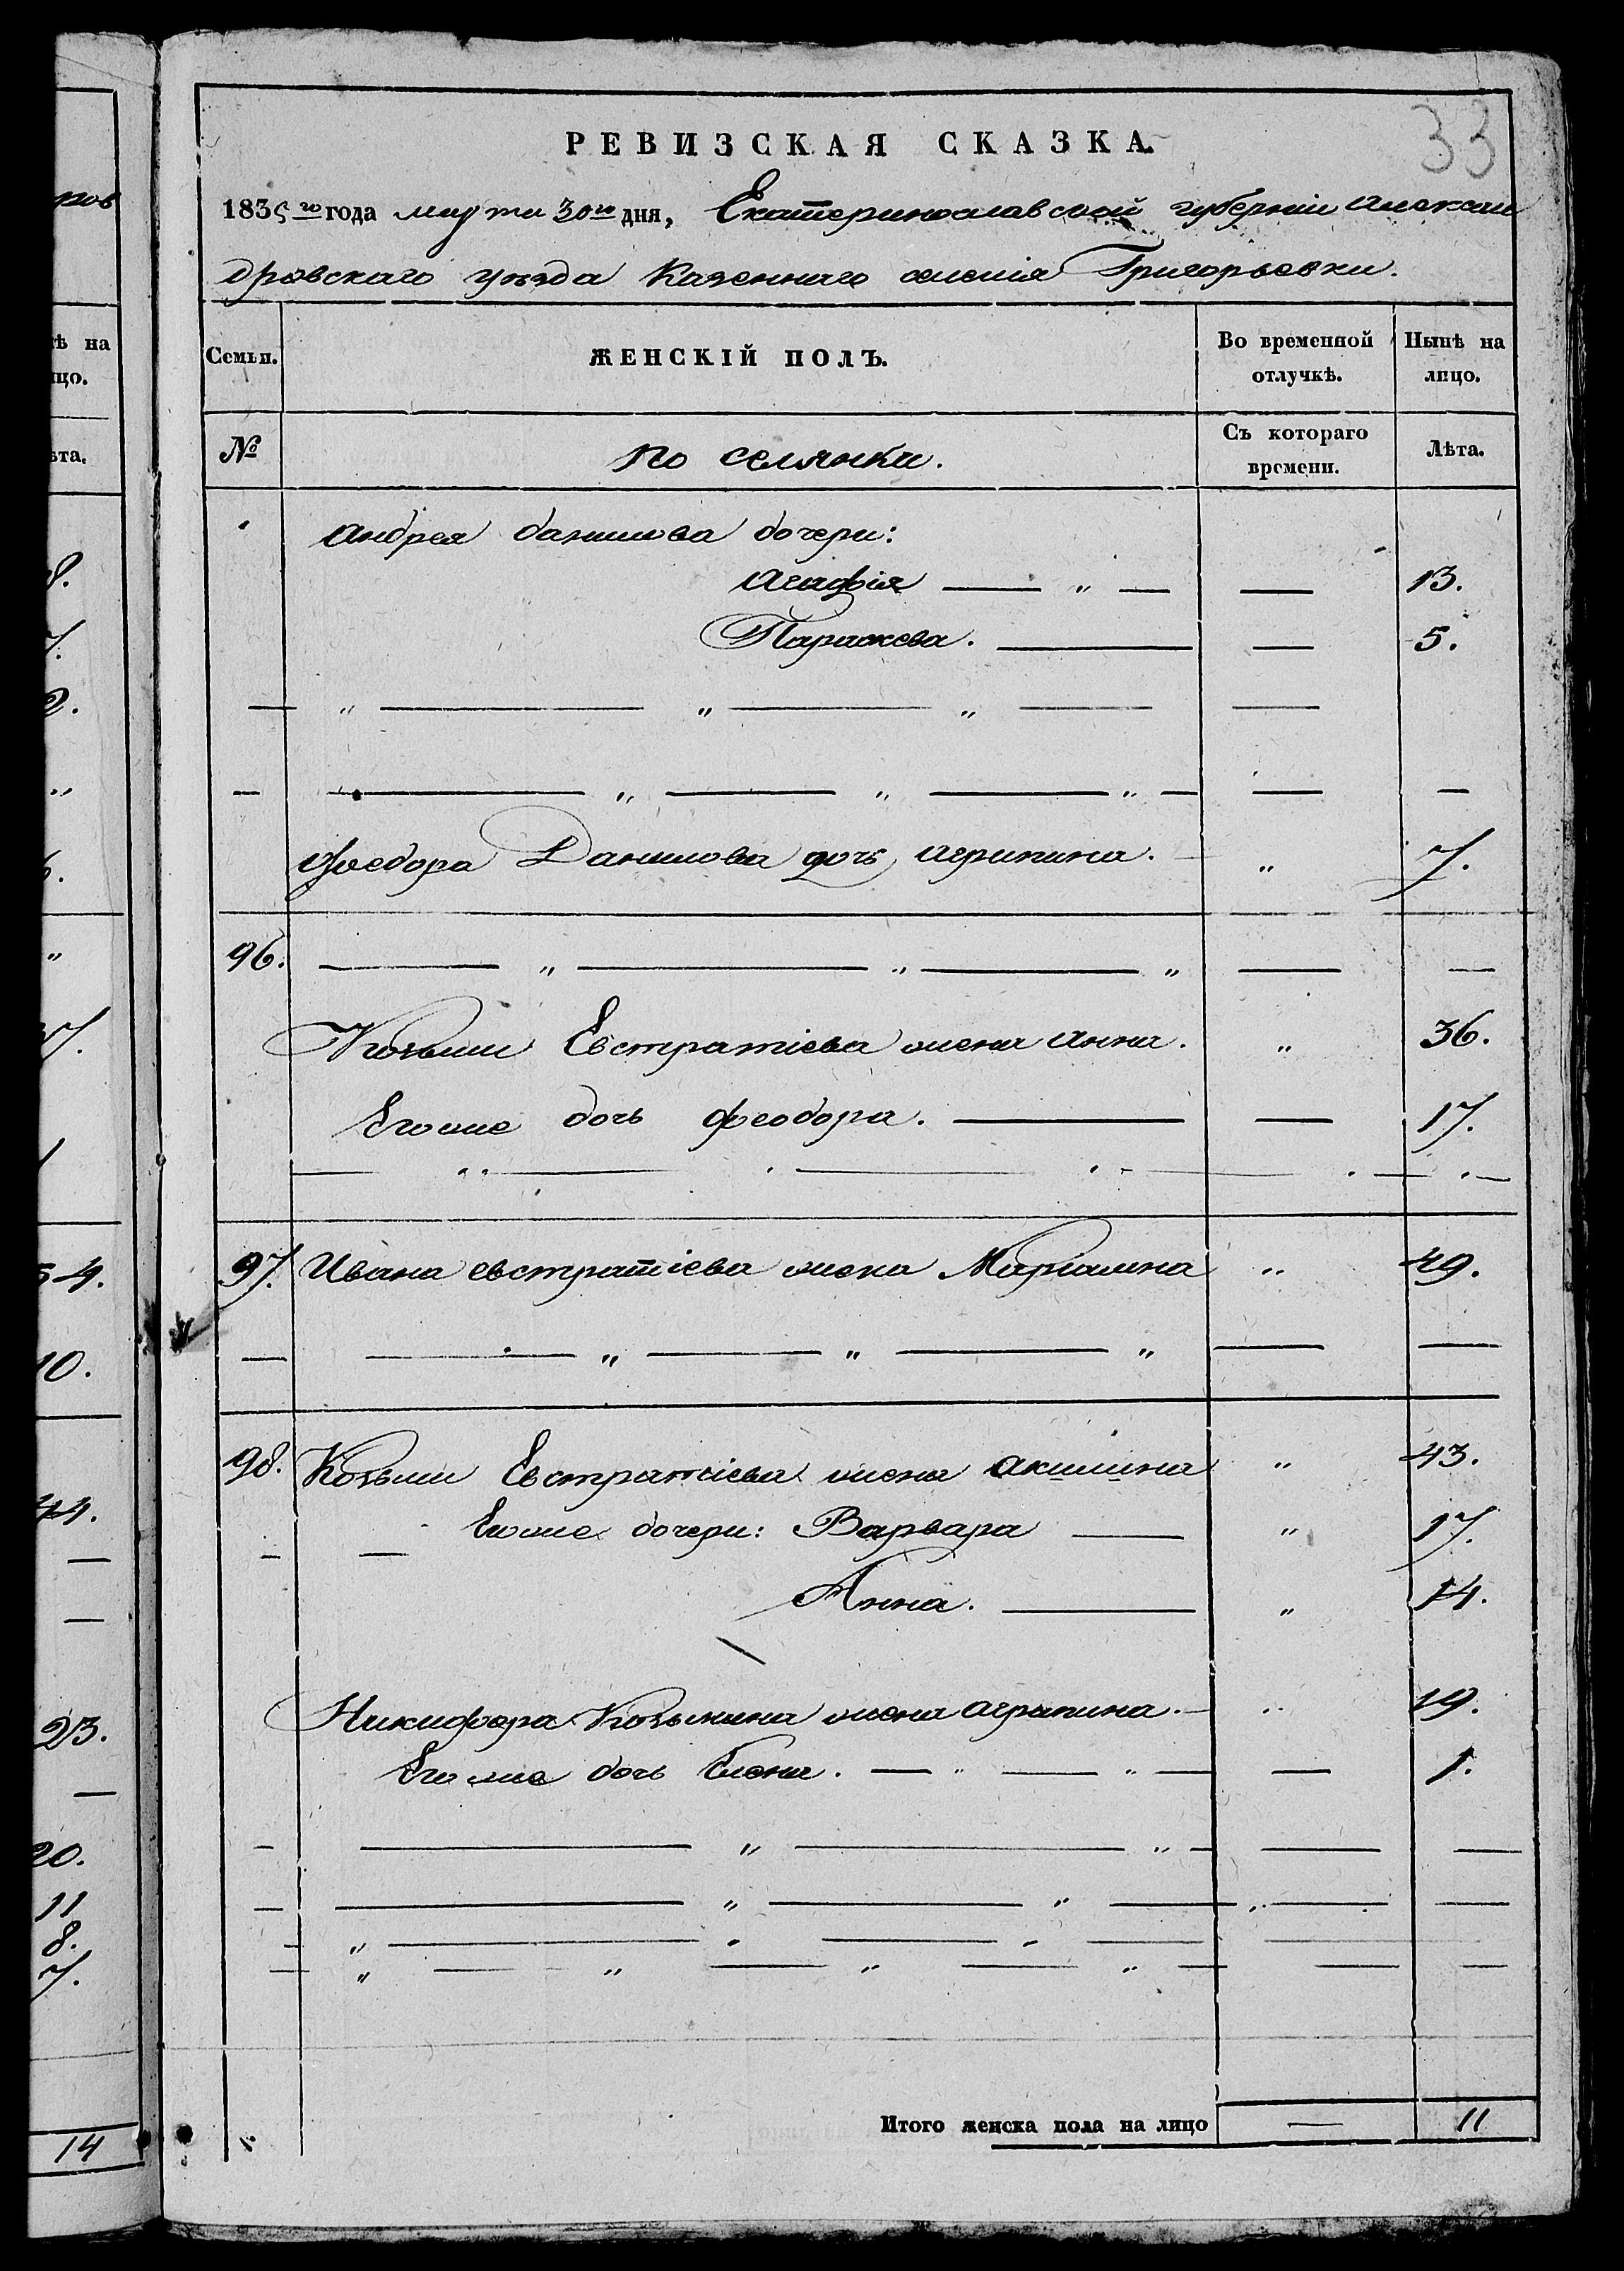 ров
ѣ на
цо.
ѣта.
8.
7.
2.
6.
47.
54.
10.
44.
23.
20.
11
8.
7.
14
33
РЕВИЗСКАЯ СКАЗКА.
1835 го года марта 30 го дня, Екатеринославской губерніи Александ
дровскаго уѣзда Казеннаго селенія Григорьевки.
Семьи. ЖЕНСКІЙ ПОЛЪ. Во временной отлучкѣ. Нынѣ на лицо.
№ Поселянки. Съ котораго времени. Лѣта.
Андрея Данилова дочери:
Агафія — „ — — 13.
Параскева. — — 5.
— „ — „ — „ — —
— — „ — „ — „ — — —
Феодора Данилова дочь Агрипина. „ 7.
96. — „ — „ — „ — —
Козьми Евстратіева жена Анна. „ 36.
Егоже дочь Феодора. — — 17.
97. Ивана Евстратіева жена Марьямна „ 49.
— — „ — „ — „ — —
98. Козьми Евстратіева жена Акилина „ 43.
Егоже дочери: Варвара — „ 17.
Анна. — „ 14.
Никифора Козьмина жена Агрипина. „ 19.
Егоже дочь Елена. — „ — „ — — 1.
— — „ — „ — — —
— — „ — „ — „ — —
— „ — „ — „ — —
— „ — „ — „ — „ — — —
Итого женска пола на лицо — 11